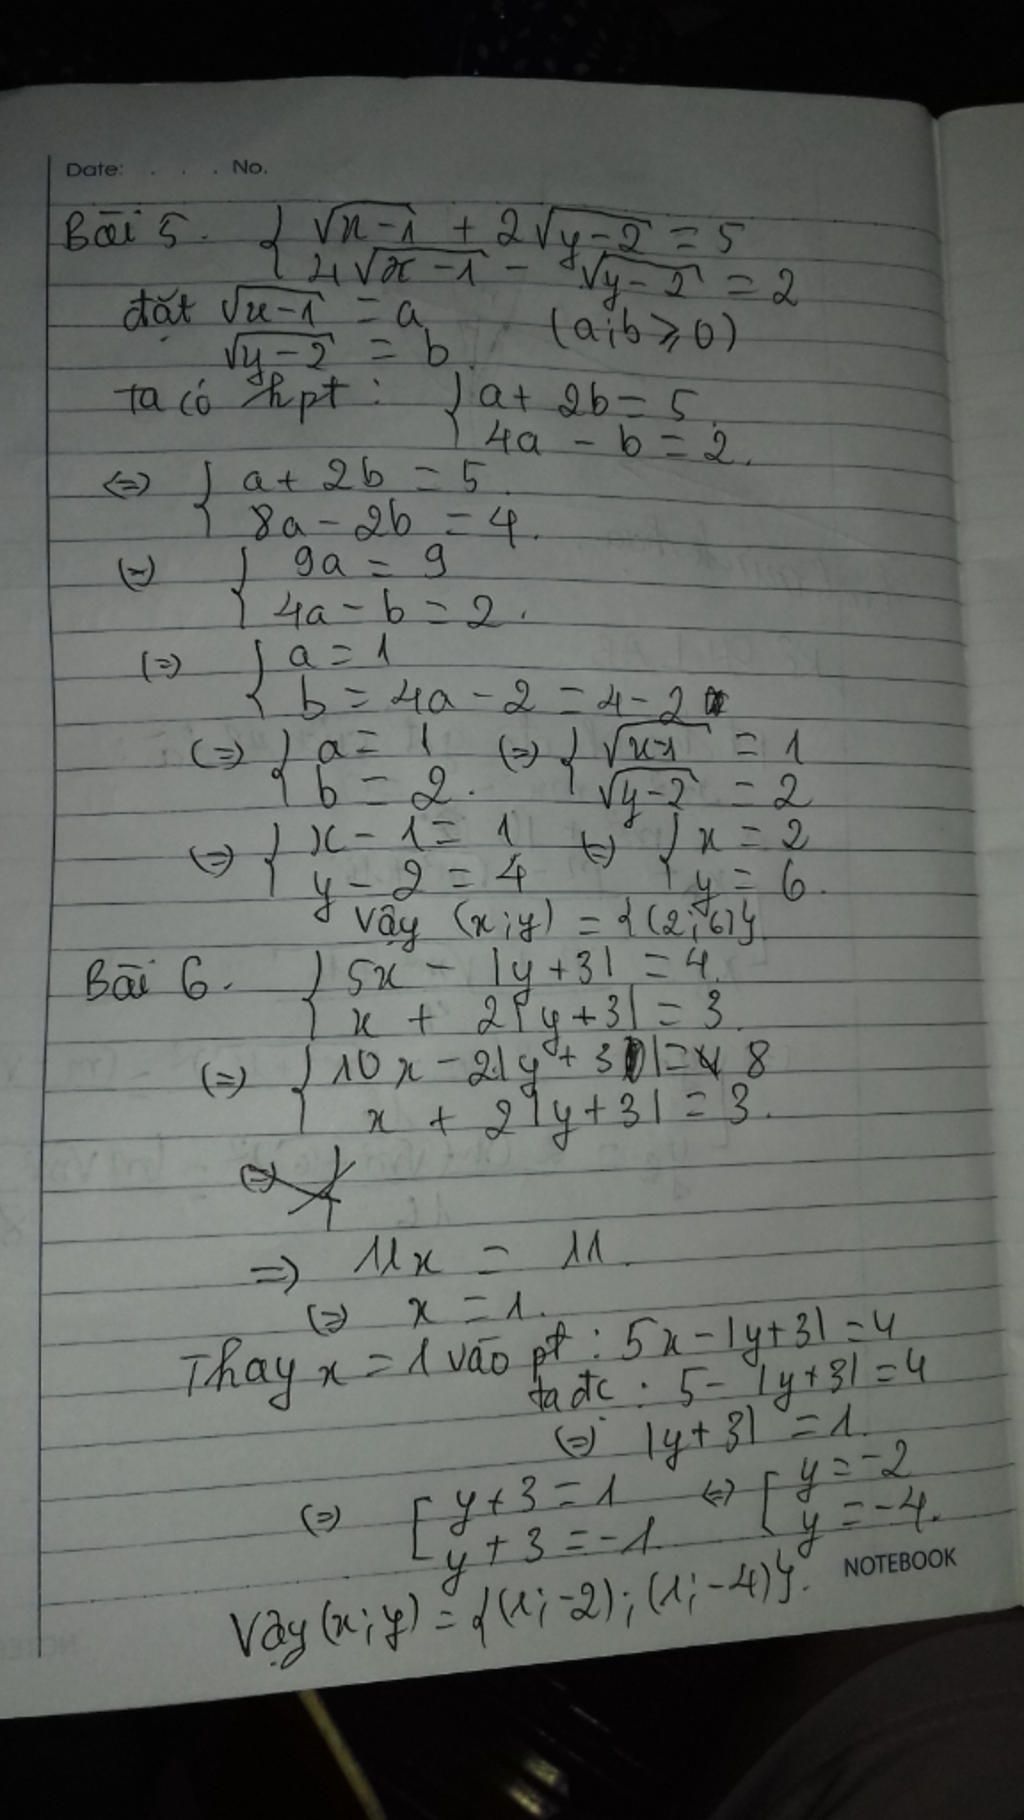 Date: . . . No.
Bài 5. { √x-1 + 2√y-2 = 5
4√x-1 - √y-2 = 2
đặt √x-1 = a (a;b ⩾ 0)
√y-2 = b
ta có hpt : { a + 2b = 5
4a - b = 2.
(=) { a + 2b = 5
8a - 2b = 4.
(=) { 9a = 9
4a - b = 2.
(=) { a = 1
b = 4a - 2 = 4 - 2
(=) { a = 1 (=) { √x-1 = 1
b = 2. √y-2 = 2
(=) { x - 1 = 1 (=) { x = 2
y - 2 = 4 y = 6.
Vậy (x;y) = {(2;6)}
Bài 6. { 5x - |y+3| = 4.
x + 2|y+3| = 3
(=) { 10x - 2|y+3| = 8
x + 2|y+3| = 3.
=) 11x = 11.
(=) x = 1.
Thay x = 1 vào pt : 5x - |y+3| = 4
ta đc : 5 - |y+3| = 4
(=) |y+3| = 1.
(=) [ y + 3 = 1 (=) [ y = -2
y + 3 = -1 y = -4.
Vậy (x;y) = {(1;-2);(1;-4)}.
NOTEBOOK